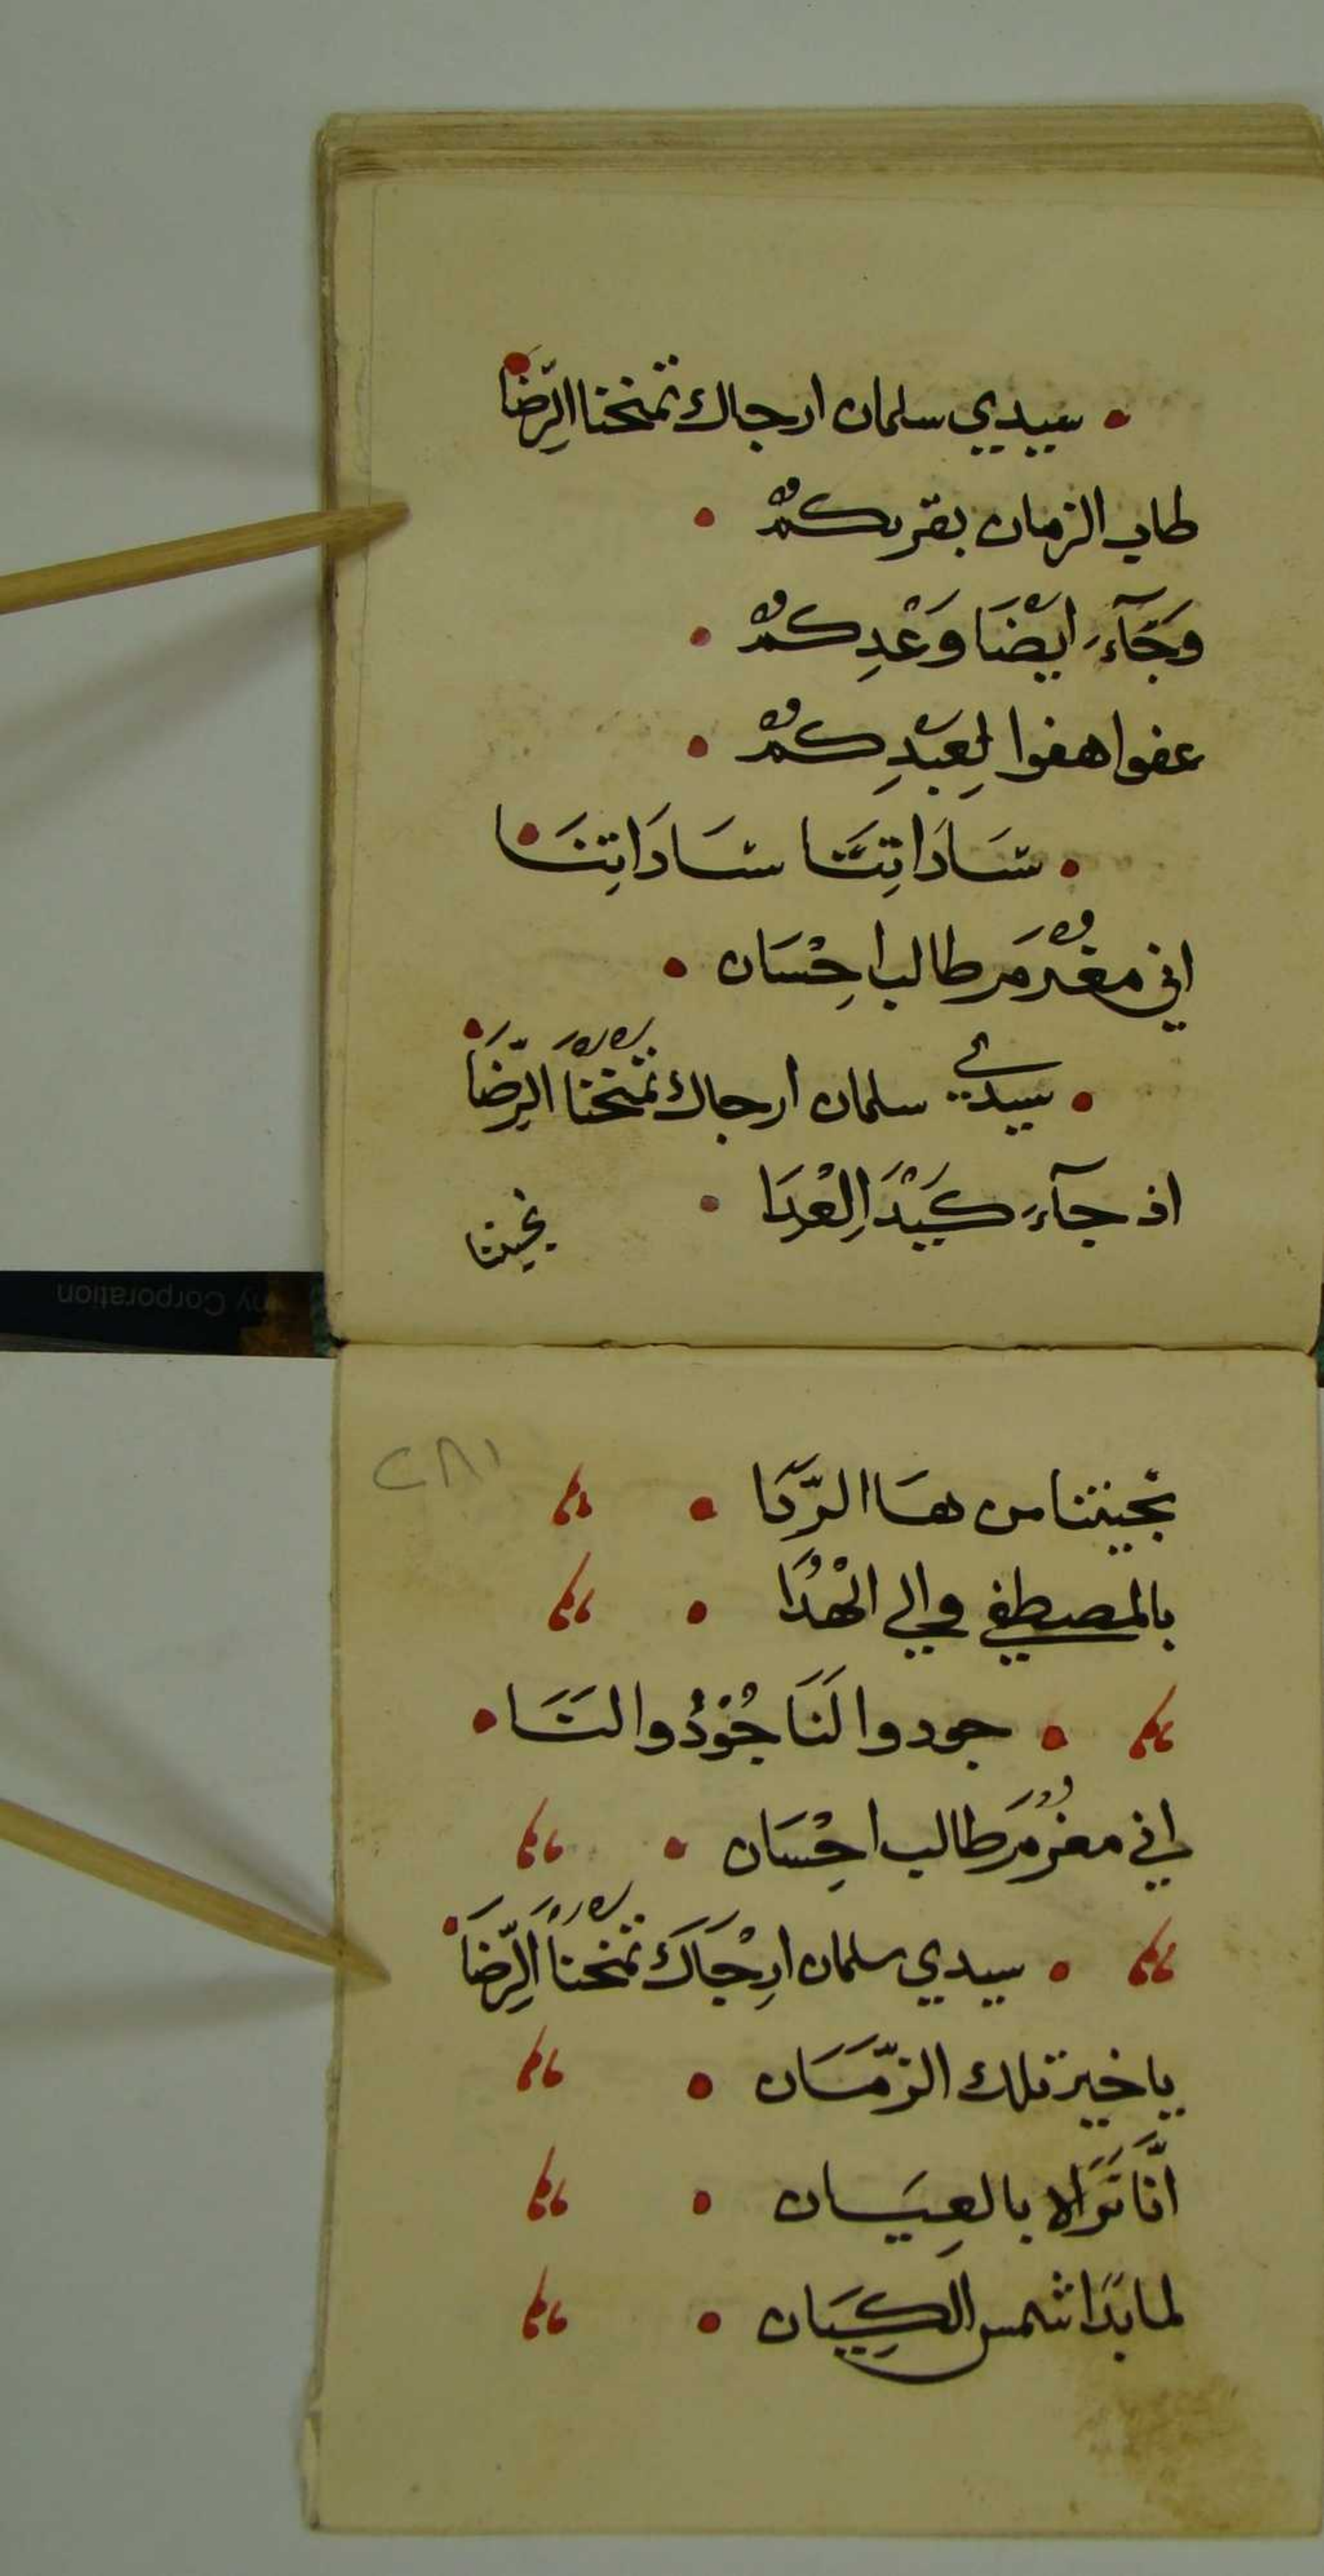 سيدي سلمان ارجاك تمنحنا الرِّضَا
طاب الزمان بقربكم
وَجَآءَ ايْضَا وَعْدِكم
عفوا هفوا لِعَبْدِكم
سَادَاتِنَا سَادَاتِنَا
اني مغرمَ طالب احِْسَان
سيدي سلمان ارجاك تمنحنَا الرِّضَا
اذ جآءَ كَيْدَ الِعْدَا
نجيتنا
نجيتنا من هَا الرَّدَا
بالمصطفي والي الْهُدَا
جودوا لَنَا جُوْدُوا لنَا
اني مغرُمَ طالب احِْسَان
سيدي سلمان ارِْجَاكَ تمنحنَا الرِّضَا
يا خير تلك الزّمَان
انَّا نَرَاه بالعِيَان
لما بَدَا شمس الكِيَان
٢٨١
ny Corporation